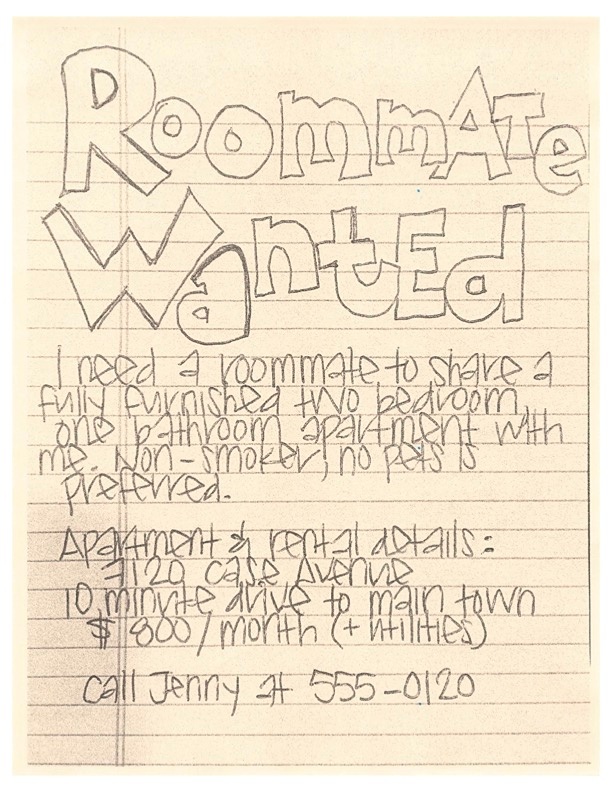 RoommATe
WantEd
I need a roommate to share a
fully furnished two bedroom,
one bathroom apartment with
me. Non-smoker, no pets is
preferred.
Apartment & rental details:
3120 Case Avenue
10 minute drive to main town
$800/month (+ utilities)
call Jenny at 555-0120